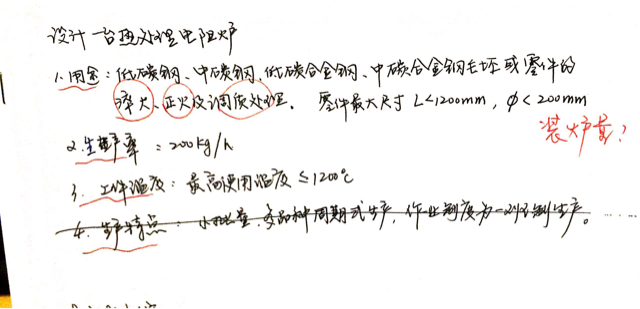 设计一台热处理电阻炉
1.用途：低碳钢、中碳钢、低碳合金钢、中碳合金钢毛坯或零件的
淬火、正火及调质处理。 零件最大尺寸 L<1200mm，φ<200mm
装炉量？
2.生产率：200kg/h
3.工作温度：最高使用温度≤1200℃
4.生产特点：小批量,多品种周期式生产，作业制度为一班制生产。